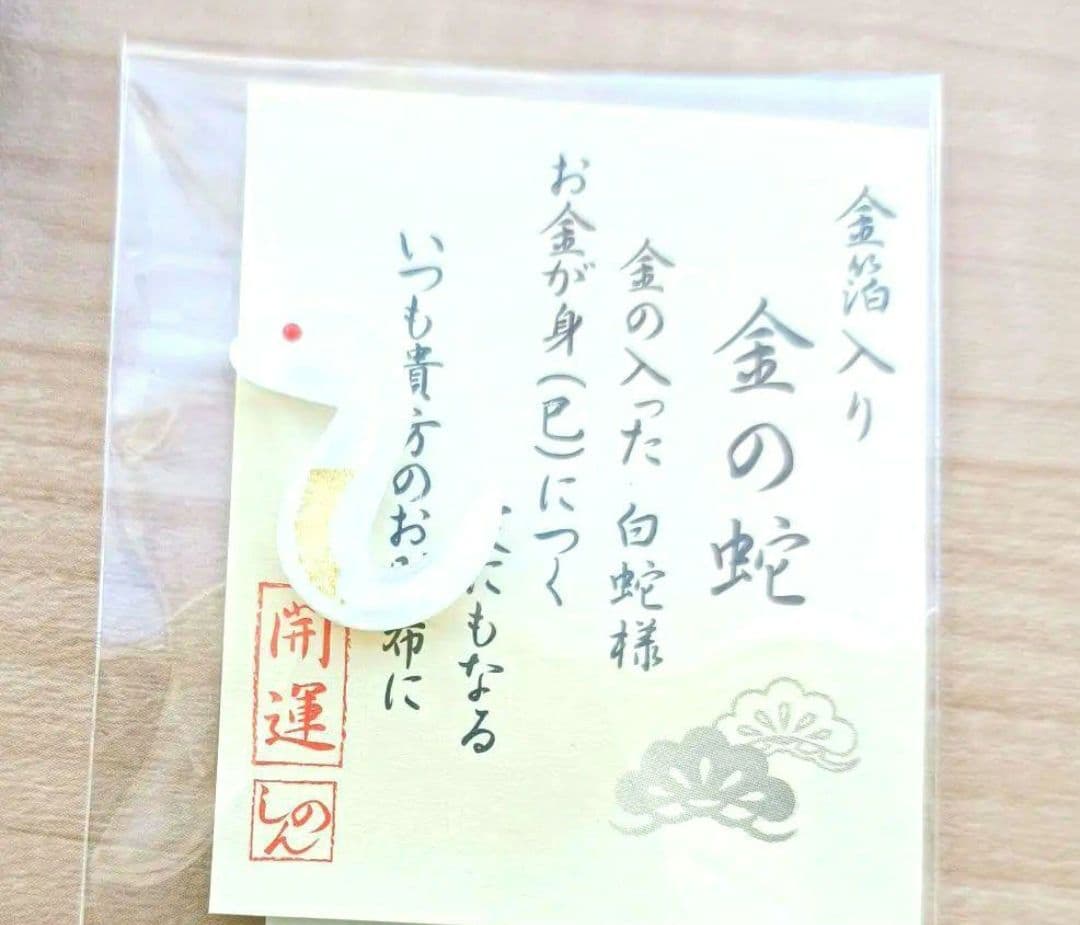 金箔入り
金の蛇
金の入った白蛇様
お金が身(巳)につく
にもなる
いつも貴方のお 布に
開運
しのん